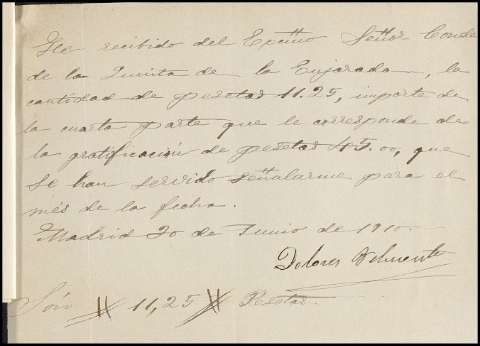 He recibido del Excmo Señor Conde
de la Quinta de la Enjarada, la
cantidad de pesetas 11.25, importe de
la cuarta parte que le corresponde de
la gratificación de pesetas 45.00, que
se han servido señalarme para el
mes de la fecha.
Madrid 20 de Junio de 1910.
Dolores Belmonte
Son # 11,25 # Pesetas.